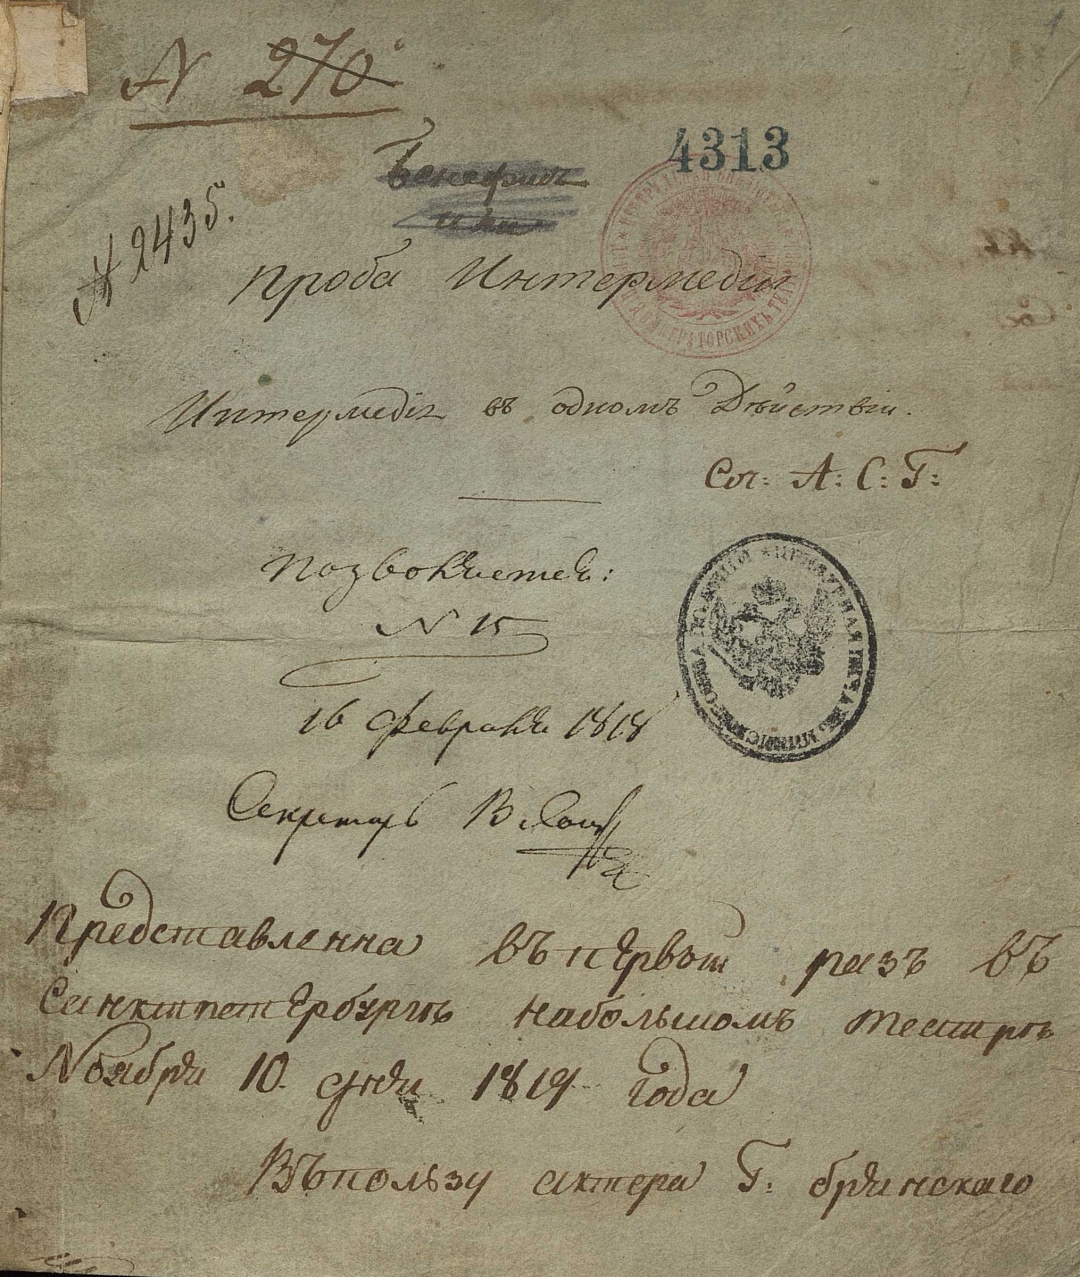 N 270
4313
Бенефисъ
или
N 2435.
Проба Интермедіи
Интермедія въ одномъ Дѣйствіи.
Соч: А: С: Г:
Позволяется:
N 15
16 февраля 1818
Секретарь
Представленна въ первой разъ въ
Санктпетербургѣ на большомъ театрѣ
Ноября 10 дня 1819 года
Въ пользу актера Г: брянскаго